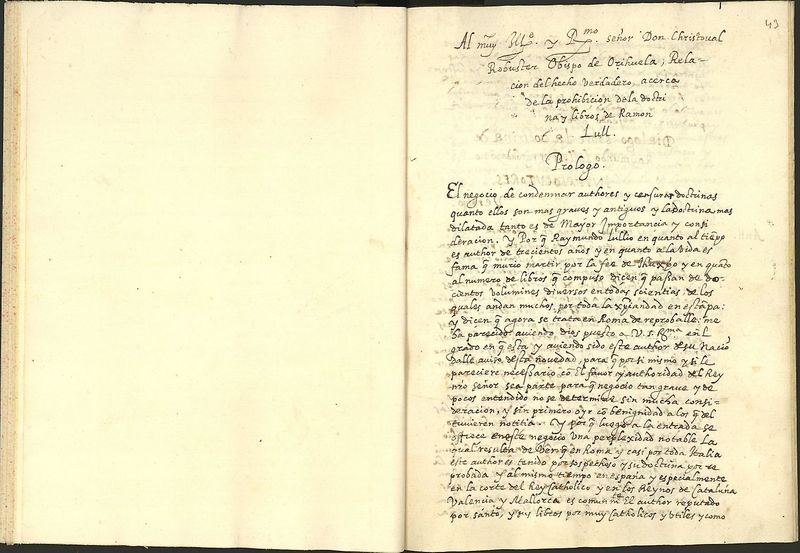 43
Al muy Ill.e y R.mo señor Don Christoual
Robuster Obispo de Orihuela, Rela-
cion del hecho verdadero, acerca
de la prohibicion de la doctri
na y libros de Ramon
Lull.
Prologo.
El negocio de condemnar authores y censurar doctrinas
quanto ellos son mas graues y antiguos y la doctrina mas
dilatada tanto es de Mayor Importancia y consi
deracion. Y Por q̃ Raymundo Lullio en quanto al tiẽpo
es author de trecientos años y en quanto a la Vida es
fama q̃ murio martir por la fee de y en quãto
al numero de libros q̃ compuso dicen q̃ passan de do-
cientos Volumines diuersos en todas scientias, de los
quales andan muchos por toda la xp̃iandad en estãpa:
y dicen q̃ agora se trata en Roma de reproballe: me
ha parecido auiendo dios puesto a V. S. Rma en l
grado en q̃ esta y auiendo sido este author de su Naciõ
dalle auiso desta nouedad, para q̃ por si mismo y si le
pareciere necessario cõ El fauor y authoridad del Rey
nr̃o señor sea parte para q̃ negocio tan graue y de
pocos entendido no se determine sin mucha consi-
deracion, y sin primero oyr cõ benignidad a los q̃ del
tuuieren notitia. Y por q̃ luego a la entrada se
offrece en este negocio Una perplexidad notable La
qual resulta de Ver q̃ en Roma y casi por toda Italia
este author es tenido por sospechoso y su doctrina por re
probada y al mismo tiempo en españa y especialmente
en la corte del Rey Catholico y en los Reynos de Cataluña
Valencia y Mallorca es comunm̃te El author reputado
por santo, y sus libros por muy Catholicos y Vtiles y como